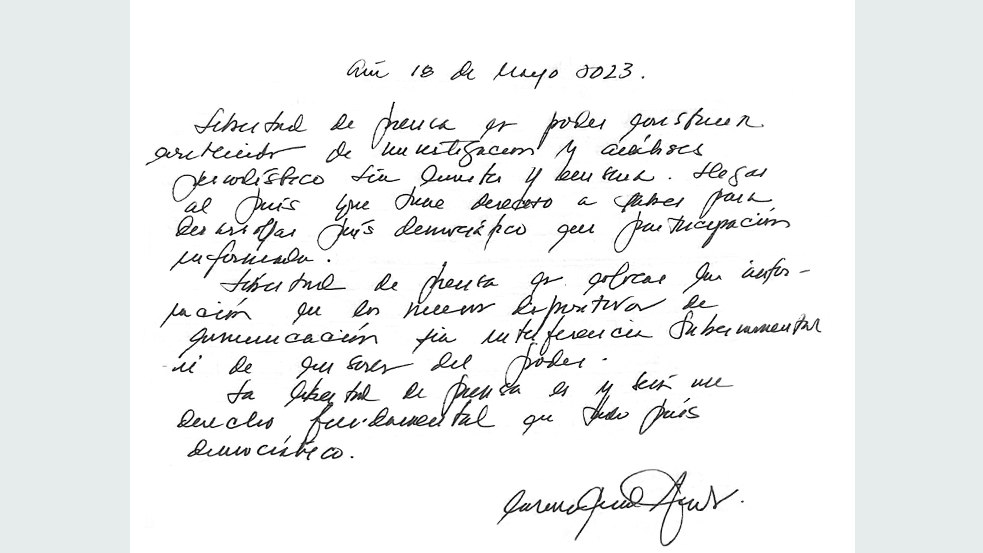 18 de Mayo 2023.
Libertad de prensa es poder construir
contenidos de investigación y análisis
periodístico sin límites y censura. Llegar
al país que tiene derecho a saber para
desarrollar país democrático con participación
informada.
Libertad de prensa es colocar la infor-
mación en los nuevos dispositivos de
comunicación sin interferencia gubernamental
ni de censores del poder.
La libertad de prensa es y será un
derecho fundamental en todo país
democrático.